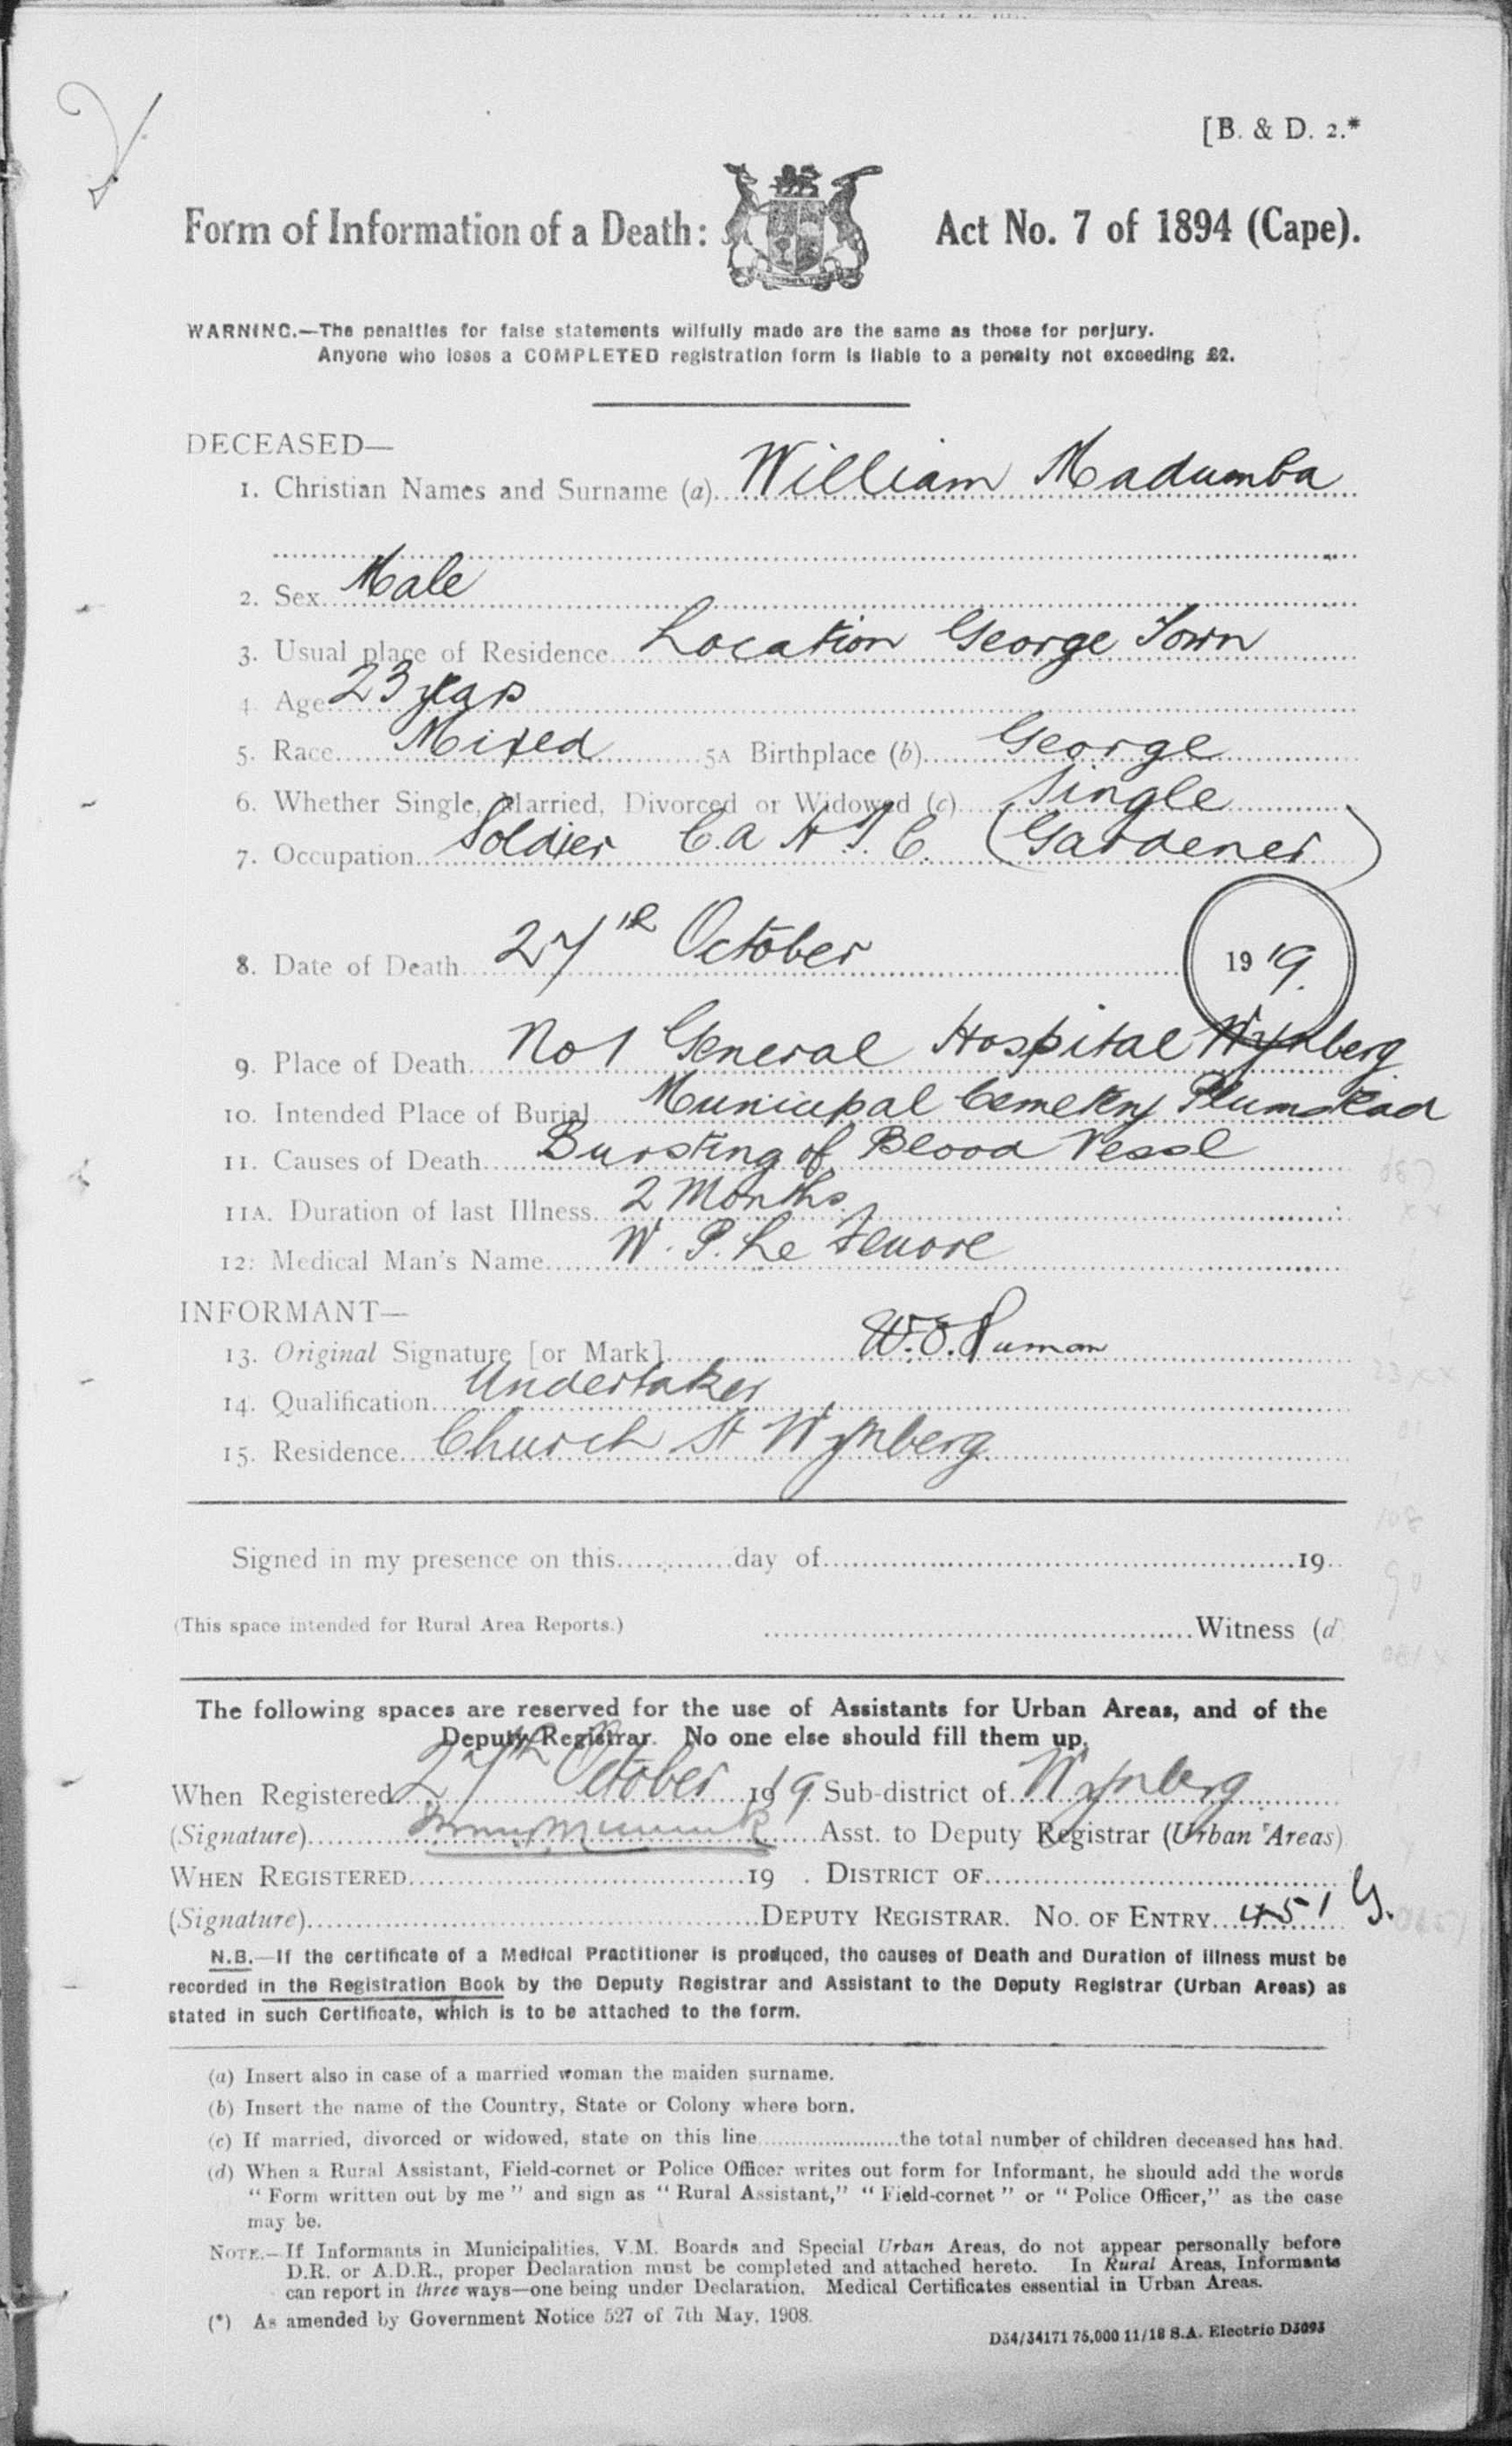 [B. & D. 2.*
Form of Information of a Death: Act No. 7 of 1894 (Cape).
WARNING.—The penalties for false statements wilfully made are the same as those for perjury.
Anyone who loses a COMPLETED registration form is liable to a penalty not exceeding £2.
DECEASED—
1. Christian Names and Surname (a) William Madumba
2. Sex Male
3. Usual place of Residence Location George Town
4. Age 23 years
5. Race Mixed 5A Birthplace (b) George
6. Whether Single, Married, Divorced or Widowed (c) Single
7. Occupation Soldier C.A.H.T.C. (Gardener)
8. Date of Death 27th October 1919.
9. Place of Death No 1 General Hospital Wynberg
10. Intended Place of Burial Municipal Cemetery Plumstead
11. Causes of Death Bursting of Blood Vessl
11A. Duration of last Illness 2 Months
12: Medical Man's Name W. P. Le
INFORMANT—
13. Original Signature [or Mark] W.
14. Qualification Undertaker
15. Residence Church St Wynberg
Signed in my presence on this day of 19
(This space intended for Rural Area Reports.) Witness (d
The following spaces are reserved for the use of Assistants for Urban Areas, and of the
Deputy Registrar. No one else should fill them up.
When Registered 27th October 1919 Sub-district of Wynberg
(Signature) Asst. to Deputy Registrar (Urban Areas)
WHEN REGISTERED 19 . DISTRICT OF
(Signature) DEPUTY REGISTRAR. NO. OF ENTRY 451 G.
N.B.—If the certificate of a Medical Practitioner is produced, the causes of Death and Duration of Illness must be
recorded in the Registration Book by the Deputy Registrar and Assistant to the Deputy Registrar (Urban Areas) as
stated in such Certificate, which is to be attached to the form.
(a) Insert also in case of a married woman the maiden surname.
(b) Insert the name of the Country, State or Colony where born.
(c) If married, divorced or widowed, state on this line the total number of children deceased has had.
(d) When a Rural Assistant, Field-cornet or Police Officer writes out form for Informant, he should add the words
" Form written out by me " and sign as " Rural Assistant," " Field-cornet " or " Police Officer," as the case
may be.
NOTE.—If Informants in Municipalities, V.M. Boards and Special Urban Areas, do not appear personally before
D.R. or A.D.R., proper Declaration must be completed and attached hereto. In Rural Areas, Informants
can report in three ways—one being under Declaration. Medical Certificates essential in Urban Areas.
(*) As amended by Government Notice 527 of 7th May, 1908.
D34/34171 75,000 11/18 S.A. Electric D3093